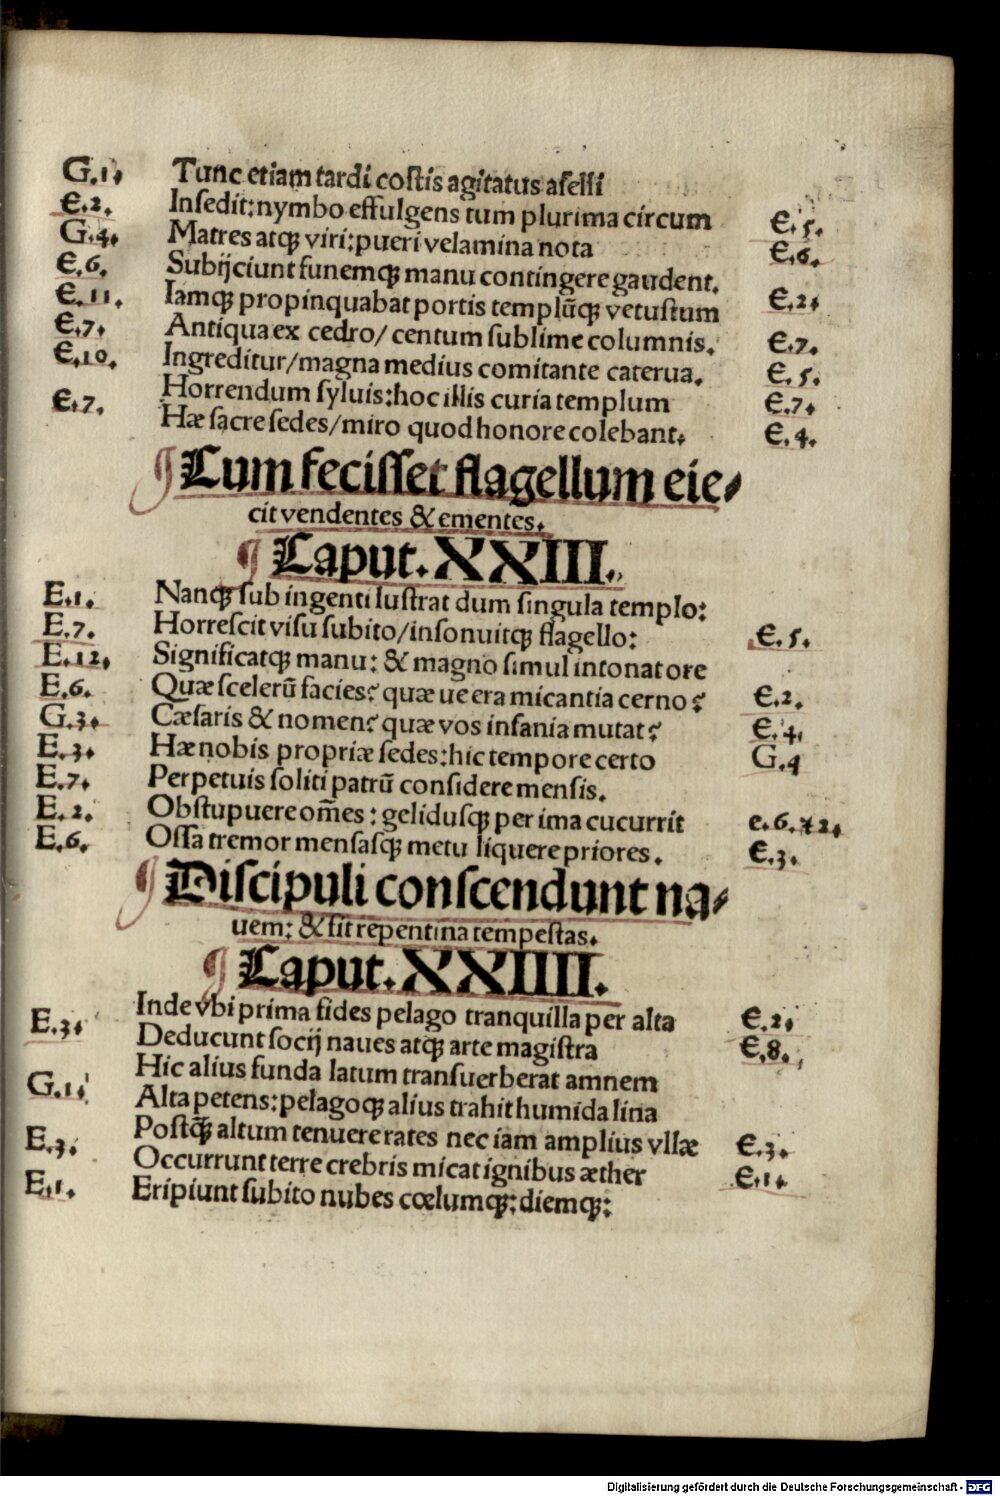 G.1. Tunc etiam tardi costis agitatus aselli
E.2. Insedit: nymbo effulgens tum plurima circum E.5.
G.4. Matres atqꝫ viri: pueri velamina nota E.6.
E.6. Subijciunt funemqꝫ manu contingere gaudent.
E.11. Iamqꝫ propinquabat portis templūqꝫ vetustum E.2.
E.7. Antiqua ex cedro/ centum sublime columnis. E.7.
E.10. Ingreditur/ magna medius comitante caterua. E.5.
Horrendum syluis: hoc illis curia templum E.7.
E.7. Hæ sacre sedes/ miro quod honore colebant. E.4.
¶ Cum fecisset flagellum eie⸗
cit vendentes & ementes.
¶ Caput. XXIII.
E.1. Nanqꝫ sub ingenti lustrat dum singula templo:
E.7. Horrescit visu subito/ insonuitqꝫ flagello: E.5.
E.12. Significatqꝫ manu: & magno simul intonat ore
E.6. Quæ scelerū facies? quæ ue era micantia cerno? E.2.
G.3. Cæsaris & nomen? quæ vos insania mutat? E.4.
E.3. Hæ nobis propriæ sedes: hic tempore certo G.4
E.7. Perpetuis soliti patrū considere mensis.
E.2. Obstupuere om̄es: gelidusqꝫ per ima cucurrit e.6.⁊2.
E.6. Ossa tremor mensasqꝫ metu liquere priores. E.3.
¶ Discipuli conscendunt na⸗
uem: & fit repentina tempestas.
¶ Caput. XXIIII.
Inde vbi prima fides pelago tranquilla per alta E.2.
E.3. Deducunt socij naues atqꝫ arte magistra E.8.
Hic alius funda latum transuerberat amnem
G.1. Alta petens: pelagoqꝫ alius trahit humida lina
Postq̄ꝫ altum tenuere rates nec iam amplius vllæ E.3.
E.3. Occurrunt terre crebris micat ignibus æther E.1.
E.1. Eripiunt subito nubes cœlumqꝫ: diemqꝫ:
Digitalisierung gefördert durch die Deutsche Forschungsgemeinschaft - DFG